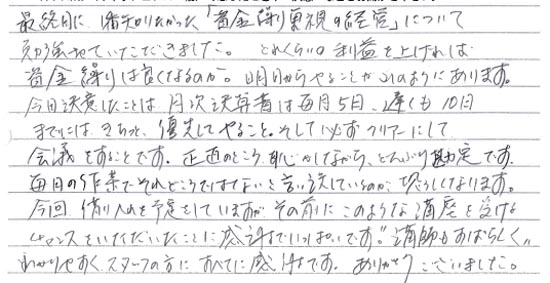 最終日に、一番知りたかった「資金繰り重視の経営」について
勉強させていただきました。どれくらいの利益を上げれば
資金繰りは良くなるのか。明日からやることが山のようにあります。
今日決意したことは、月次決算書は毎月5日、遅くも10日
までにはきちっと、優先してやること。そして必ずクリアーにして
会議をすることです。正直のところ、恥ずかしながら、どんぶり勘定です。
毎日の作業でそれどころではないと言い訳しているのが、恐ろしくなります。
今回、借り入れを予定をしていますが、その前にこのような講座を受ける
チャンスをいただいたことに感謝でいっぱいです。講師もすばらしく
わかりやすく、スタッフの方に、すべてに感謝です。ありがとうございました。